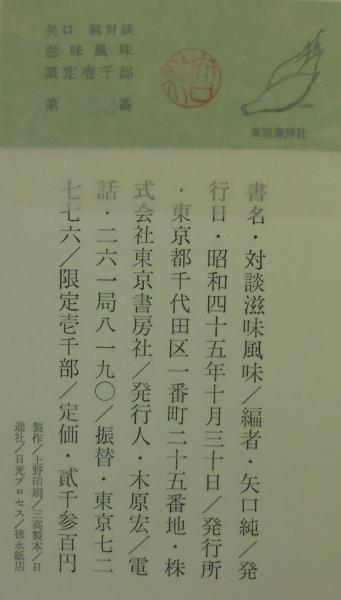 矢口純対談
滋味風味
限定壱千部
第 32番
純
東京書房社
書名・対談滋味風味／編者・矢口純／発
行日・昭和四十五年十月三十日／発行所
・東京都千代田区一番町二十五番地・株
式会社東京書房社／発行人・木原宏／電
話・二六一局八一九〇／振替・東京七二
七七六／限定壱千部／定価・貳千参百円
製作／上野印刷／三高製本／日
進社／日光プロセス／徳永紙店